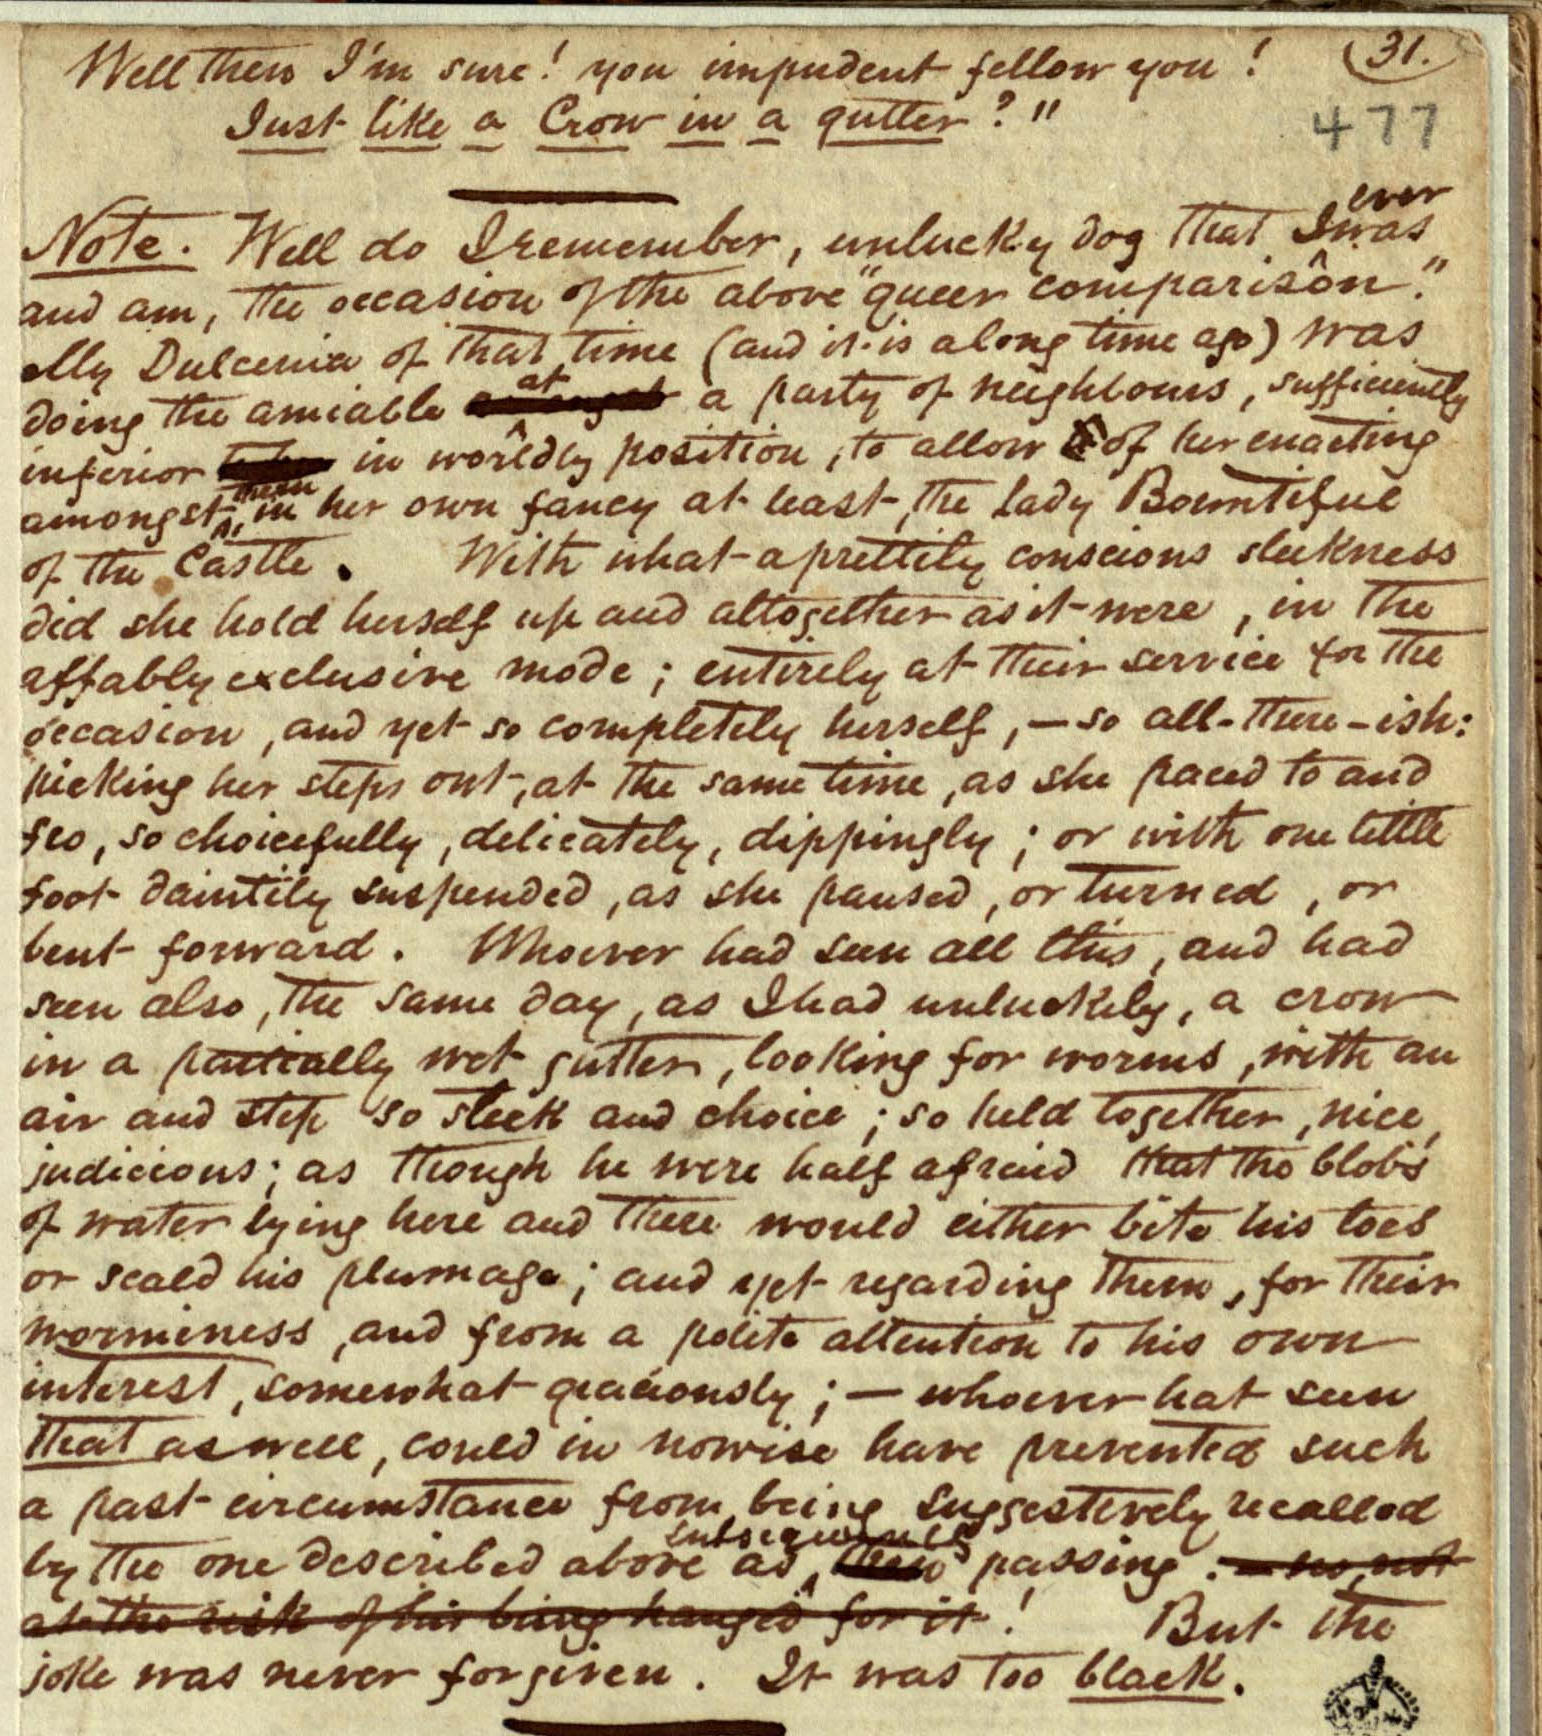 Well then I'm sure! you impudent fellow you! (31.
Just like a Crow in a gutter?"
477
Note. Well do I remember, unlucky dog that I ever was
and am, the occasion of the above "queer comparison."
My Dulcenia of that time (and it is a long time ago) was
doing the amiable at a party of neighbours, sufficiently
inferior in worldly position, to allow of her enacting
amongst them, in her own fancy at least, the Lady Bountiful
of the Castle. With what a prettily conscious sleekness
did she hold herself up and altogether as it were, in the
affably exclusive mode; entirely at their service for the
occasion, and yet so completely herself, — so all-there-ish:
picking her steps out, at the same time, as she paced to and
fro, so choicefully, delicately, dippingly; or with one little
foot daintily suspended, as she paused, or turned, or
bent forward. Whoever had seen all this, and had
seen also, the same day, as I had unluckily, a crow
in a partially wet gutter, looking for worms, with an
air and step so sleek and choice; so held together, nice,
judicious; as though he were half afraid that the blobs
of water lying here and there would either bite his toes
or scald his plumage; and yet regarding them, for their
worminess, and from a polite attention to his own
interest, somewhat graciously; — whoever hat seen
that as well, could in nowise have prevented such
a past circumstance from being suggestively recalled
by the one described above as subsequently passing. — no, not
at the risk of his being hanged for it! But the
joke was never forgiven. It was too black.